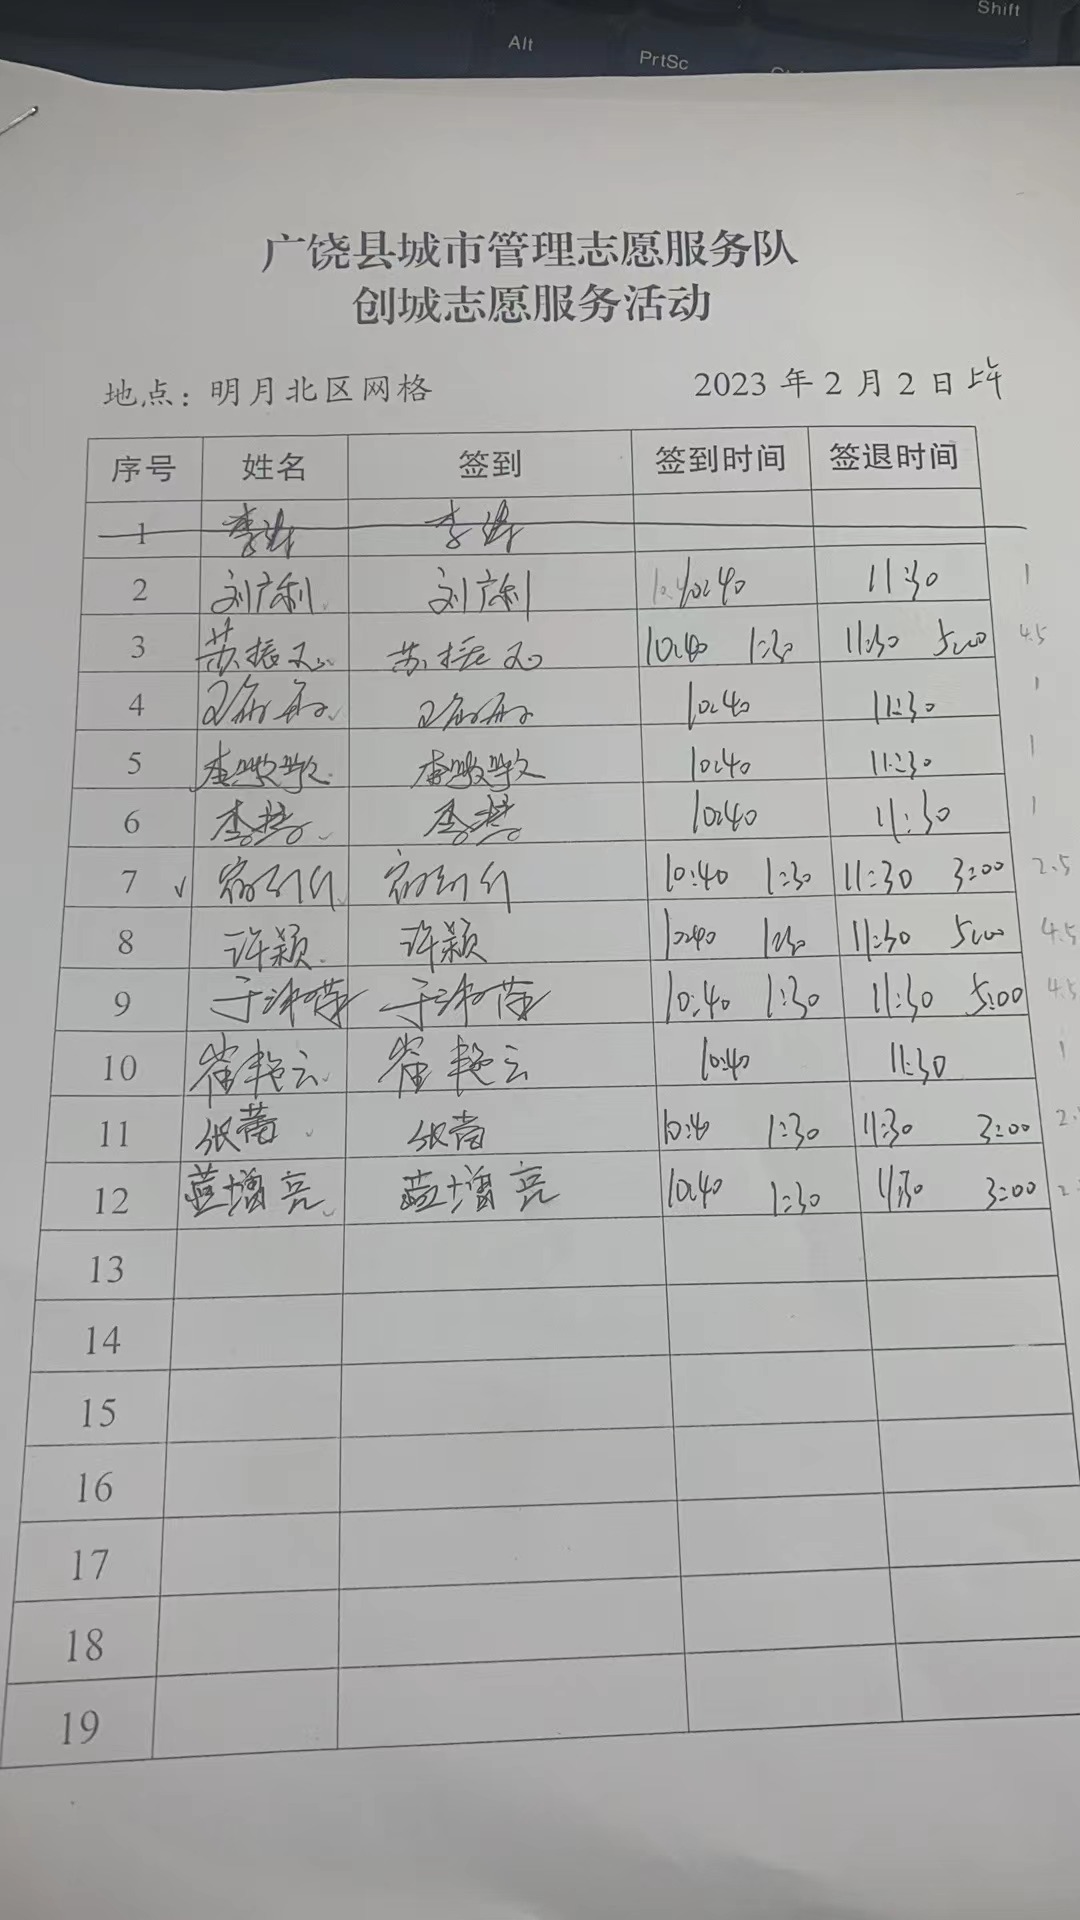 Shift
Alt
PrtSc
广饶县城市管理志愿服务队
创城志愿服务活动
地点：明月北区网格 2023年2月2日上午
序号 姓名 签到 签到时间 签退时间
1 李 李
2 刘广利 刘广利 10:40 11:30 1
3 苏振 苏振 10:40 1:30 11:30 5:00 4.5
4 10:40 11:30 1
5 李 李 10:40 11:30 1
6 李 李 10:40 11:30 1
7 √ 10:40 1:30 11:30 3:00 2.5
8 许颖 许颖 10:40 1:30 11:30 5:00 4.5
9 于 于 10:40 1:30 11:30 5:00 4.5
10 崔艳云 崔艳云 10:40 11:30 1
11 张蕾 张蕾 10:40 1:30 11:30 3:00 2.
12 蓝增亮 蓝增亮 10:40 1:30 11:30 3:00 2
13
14
15
16
17
18
19